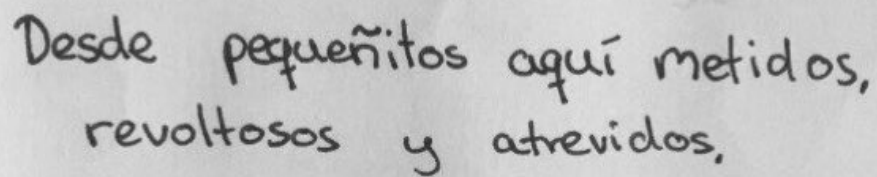 Desde pequeñitos aquí metidos,
revoltosos y atrevidos,